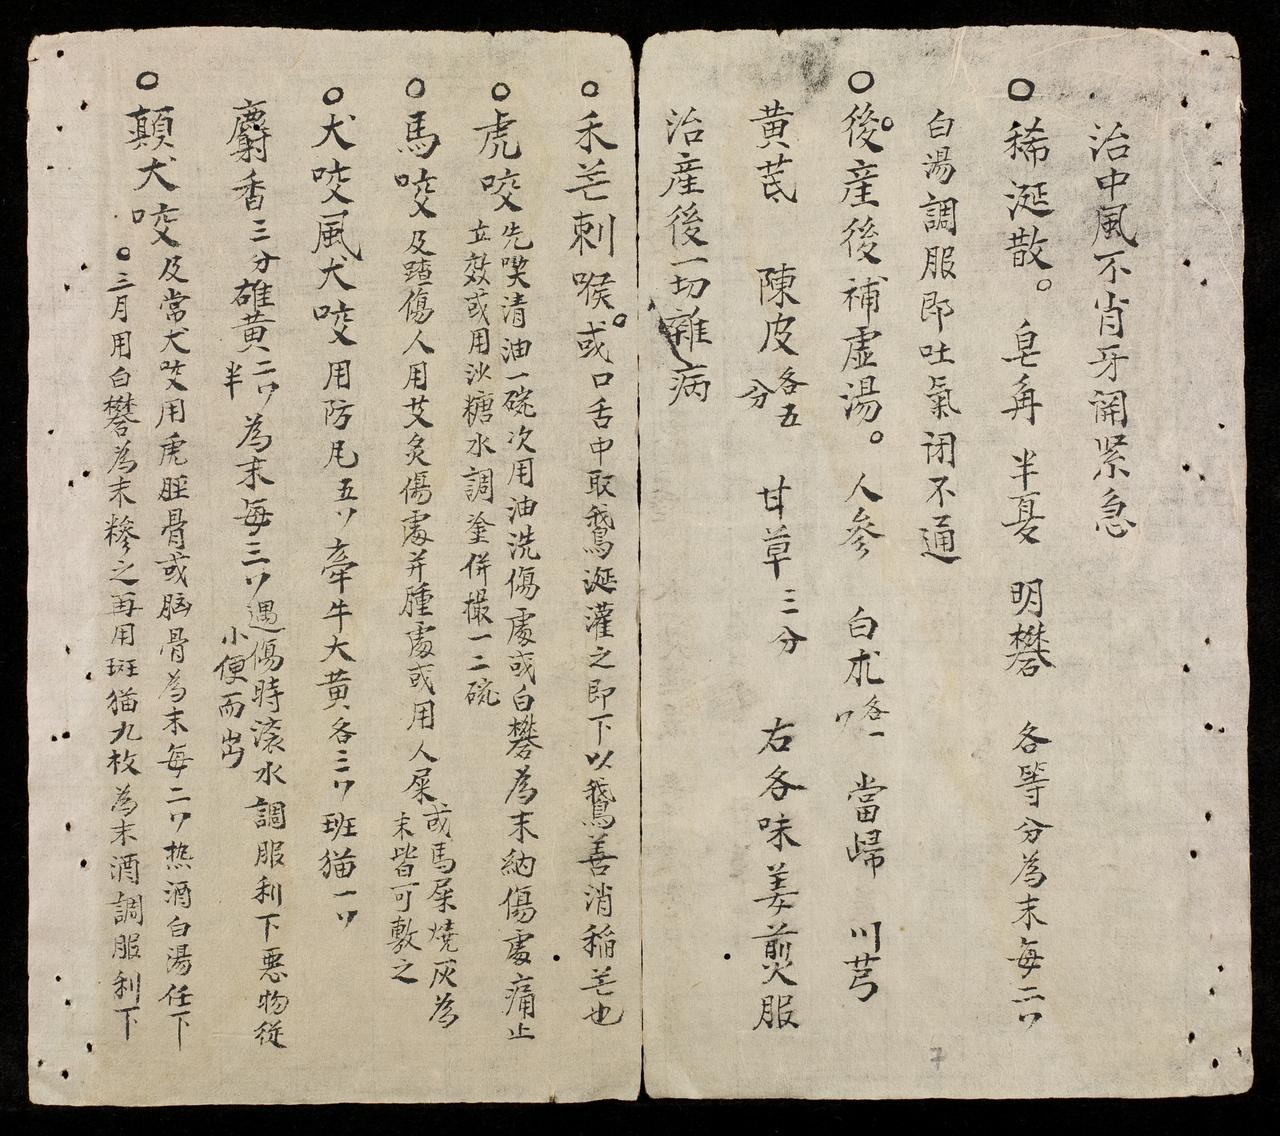 治中風不省牙関緊急
稀涎散。皂角 半夏 明礬 各等分為末每二𠂆
白湯調服即吐氣闭不通
後産後補虛湯。人參 白朮各一𠂆 當歸 川芎
黃芪 陳皮各五分 甘草三分 右各味姜煎服
治産後一切雜病
禾芒刺喉。或口舌中取鵝涎灌之即下以鵝善消稲芒也
虎咬 先喫清油一碗次用油洗傷處或白礬為末納傷處痛止
立效或用沙糖水調塗併撮一二碗
馬咬 及踏傷人用艾灸傷處并腫處或用人屎或馬屎燒灰為
末皆可敷之
犬咬風犬咬 用防風五𠂆牽牛大黃各三𠂆班猫一𠂆
麝香三分雄黃二𠂆半為末每三𠂆遇傷時滚水調服利下悪物從
小便而出
顛犬咬 及常犬咬用虎脛骨或脳骨為末每二𠂆热酒白湯任下
三月用白礬為末糝之再用斑猫九枚為末酒調服利下
7